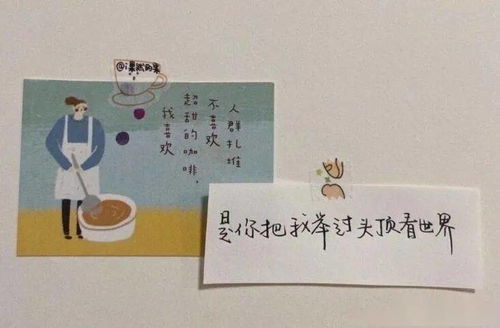 我喜欢
超甜的咖啡，
不喜欢
人群扎堆
是你把我举过头顶看世界